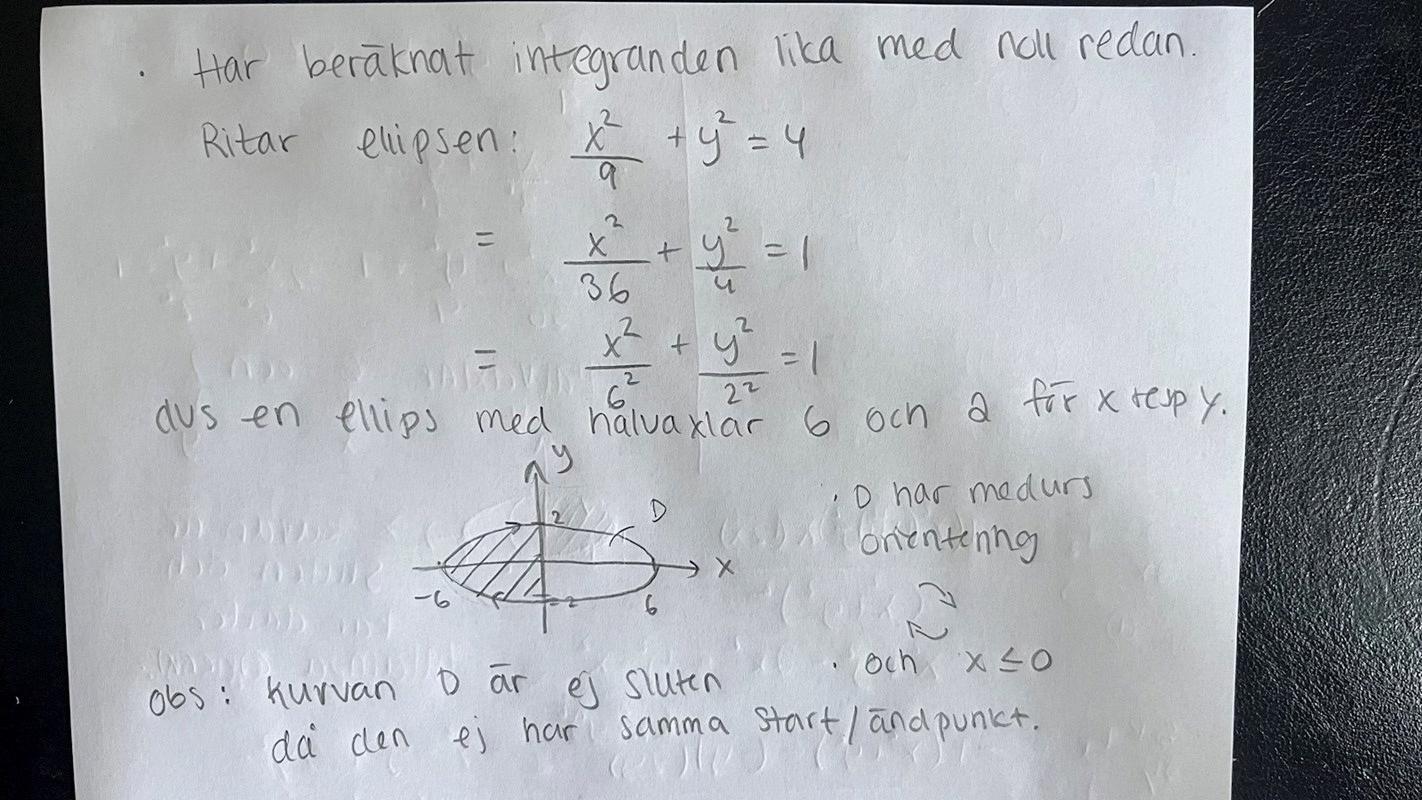 . Har beräknat integranden lika med noll redan.
Ritar ellipsen: x²/9 + y² = 4
= x²/36 + y²/4 = 1
= x²/6² + y²/2² = 1
dvs en ellips med halvaxlar 6 och 2 för x resp y.
y
2 D
x
-6 -2 6
. D har medurs
orientering
. och x ≤ 0
obs: kurvan D är ej sluten
då den ej har samma start/ändpunkt.